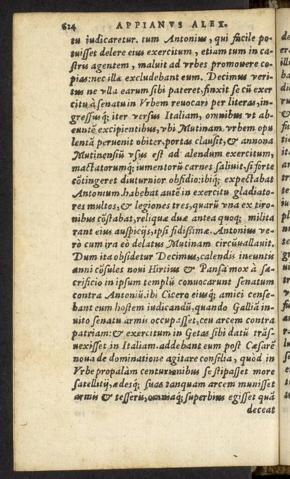 624 APPIANVS ALEX.
tu iudicaretur. tum Antonius, qui facile po-
tuisset delere eius exercitum, etiam tum in ca-
stris agentem, maluit ad vrbes promouere co-
pias: nec illæ excludebant eum. Decimus veri-
tus ne vlla earum sibi pateret, finxit se cū exer
citu à senatu in Vrbem reuocari per literas, in-
gressusq; iter versus Italiam, omnibus vt ab-
euntē excipientibus, vbi Mutinam vrbem opu
lentā peruenit obiter, portas clausit, & annona
Mutinensiū vsus est ad alendum exercitum,
mactatorumq; iumentorū carnes saliuit, si forte
cōtingeret diuturnior obsidio: ibiq; expectabat
Antonium. habebat autē in exercitu gladiato-
res multos, & legiones tres, quarū vna ex tiro-
nibus cōstabat, reliquæ duæ antea quoq; milita
rant eius auspicijs, ipsi fidissimæ. Antonius ve-
rò cum ira eò delatus Mutinam circūuallauit.
Dum ita obsidetur Decimus, calendis ineuntis
anni cōsules noui Hirtius & Pansa mox à sa-
crificio in ipsum templū conuocarunt senatum
contra Antoniū. ibi Cicero eiusq; amici cense-
bant eum hostem iudicandū, quando Galliā in-
uito senatu armis occupasset, ceu arcem contra
patriam: & exercitum in Getas sibi datū trās-
uexisset in Italiam. addebant eum post Cæsarē
noua de dominatione agitare consilia, quòd in
Vrbe propalàm centurionibus se stipasset more
satellitū, ædesq; suas tanquam arcem munisset
armis & tesseris, omniaq; superbius egisset quā
deceat